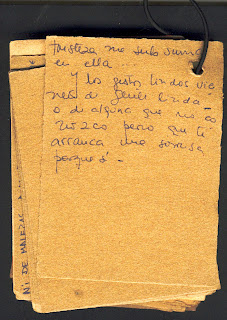 tristeza me subsumo
en ella ...
Y los gestos lindos vie
nen de gente linda -
o de alguna que no co
nozco pero que te
arranca una sonrisa
porque sí -
NI DE MALEZAS